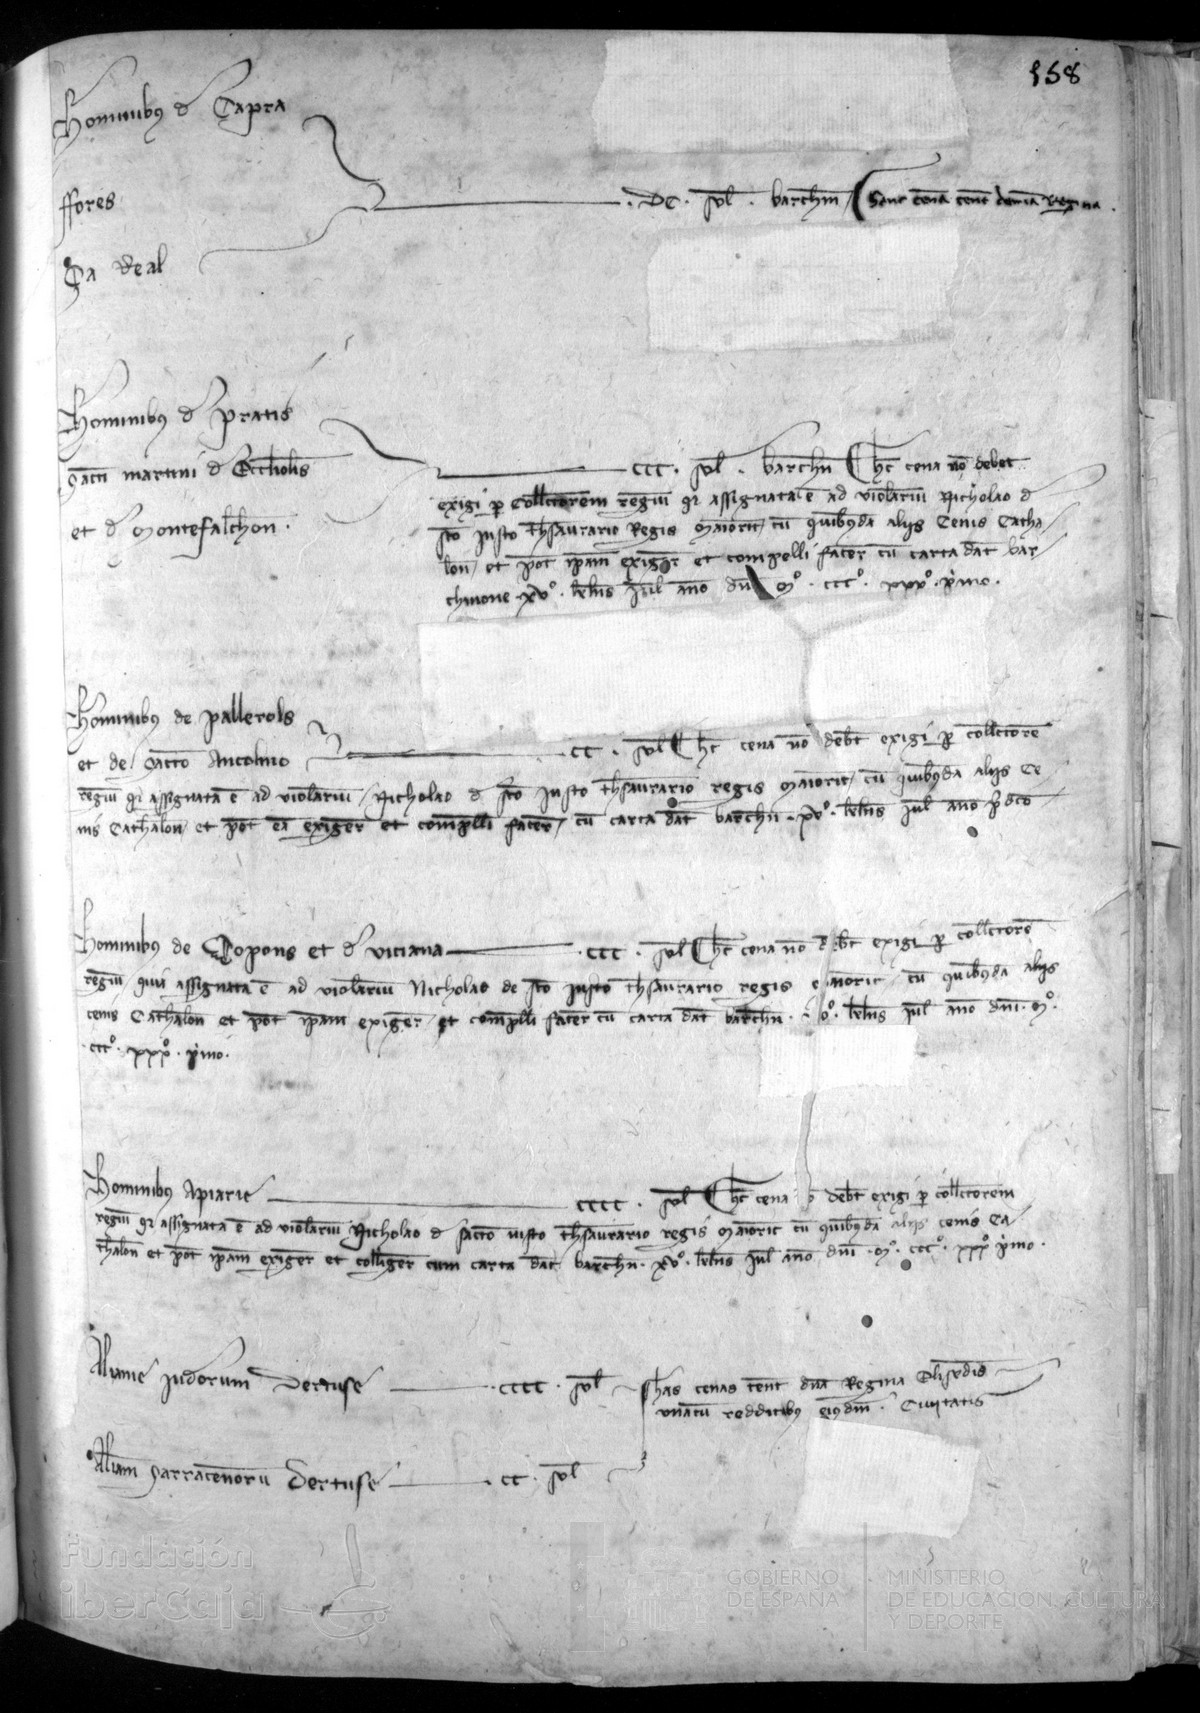 158
Hominibus d Capra
ffores
Ça Real
.DC. sol. barchin Hanc cenam tenet domina Regina.
Hominibus d Pratis
Sancti martini d
et d Montefalchon.
CCC. sol. barchn Hec cena no debet
exigi per Collectorem regium quia assignata e ad violarium Nicholao d
sco Justo thesaurario Regis Maioric cu quibusda alijs Cenis Catha
lon et pot ipam exiger et compelli facer cu carta dat bar
chinone xvº. klns Jul ano dni Mº. cccº. xxxº. primo.
Hominibus de pallerols
et de sancto Antolino
CC. sol Hec cena no debet exigi per collectore
regium quia assignata e ad violarium Nicholao d sco Justo thesaurario regis Maioric cu quibusda alijs Ce
nis Cathalon et pot ea exiger et compelli facer cu carta dat barchn. xvº. klns Jul ano predco
Hominibus de Copons et d viciana
.CCC. sol Hec cena no debet exigi per collectore
regium quia assignata e ad violarium Nicholao de sco Justo thesaurario regis Maioric cu quibusda alijs
cenis Cathalon et pot ipam exiger et compelli facer cu carta dat barchn. klns Jul ano dni. Mº.
.cccº. xxxº. primo.
Hominibus Apiarie
CCCC. sol Hec cena no debet exigi per collectorem
regium quia assignata e ad violarium Nicholao d sancto iusto thesaurario regis Maioric cu quibusda alijs cenis Ca
thalon et pot ipam exiger et colliger cum carta dat barchn. xvº. klns Jul ano dni. Mº. cccº. xxxº primo.
Aliame judeorum Dertuse
.CCCC. sol
has cenas tenet dna Regina
unacum redditibus eiusdem Civitatis
Aliam sarracenoru Dertuse
.CC. sol
Fundación
iberCaja
GOBIERNO
DE ESPAÑA
MINISTERIO
DE EDUCACIÓN, CULTURA
Y DEPORTE